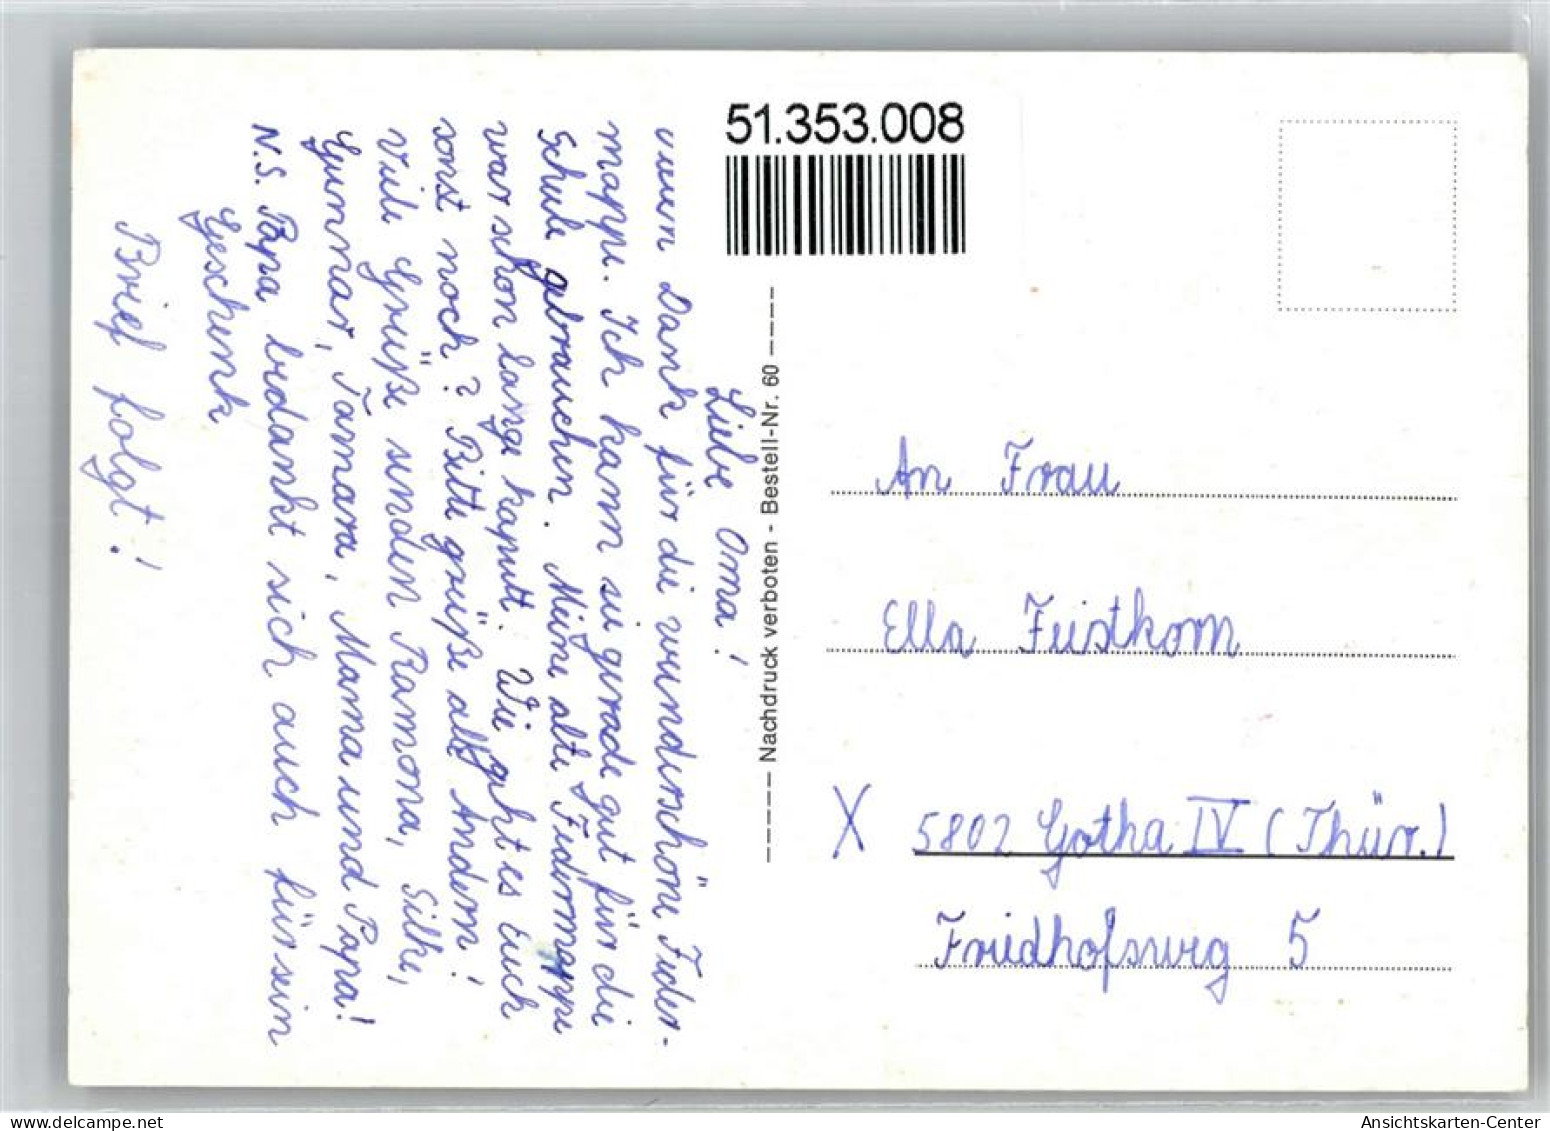 51.353.008
Liebe Oma!
Dank für die wunderschöne Feder-
mappe. Ich kann sie gerade gut für die
Schule gebrauchen. Meine alte Federmappe
war schon lange kaputt. Wie geht es Euch
sonst noch? Bitte grüße alle Andern!
Viele Grüße senden Ramona, Silke,
Gunnar, Tamara, Mama und Papa!
N.S. Papa bedankt sich auch für sein
Geschenk
Brief folgt!
Nachdruck verboten - Bestell-Nr. 60
An Frau
Ella Feistkorn
X 5802 Gotha IV (Thür.)
Friedhofsweg 5
delcampe.net
Ansichtskarten-Center